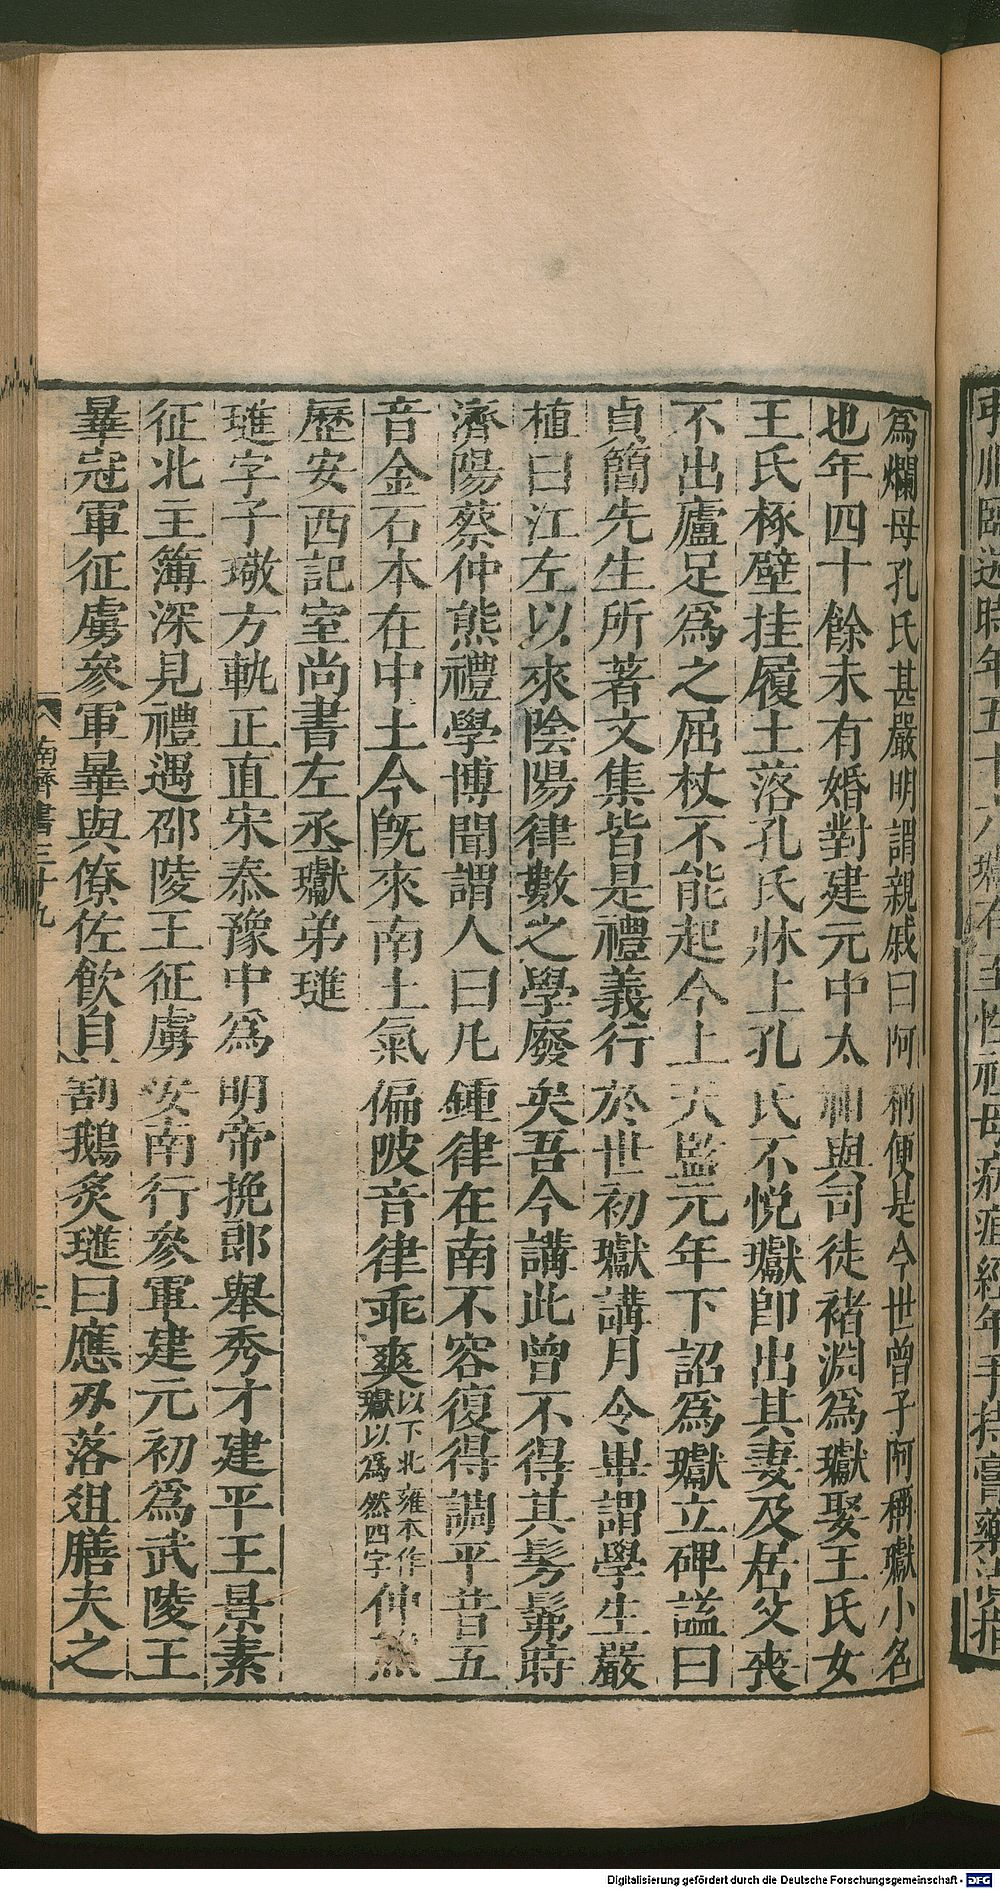 爲爛母孔氏甚嚴明謂親戚曰阿稱便是今世曾子阿稱瓛小名
也年四十餘未有婚對建元中太祖與司徒褚淵爲瓛娶王氏女
王氏椓壁挂履土落孔氏牀上孔氏不悅瓛卽出其妻及居父喪
不出廬足爲之屈杖不能起今上天監元年下詔爲瓛立碑謚曰
貞簡先生所著文集皆是禮義行於世初瓛講月令畢謂學生嚴
植曰江左以來陰陽律數之學廢矣吾今講此曾不得其髣髴時
濟陽蔡仲熊禮學博聞謂人曰凡鍾律在南不容復得調平昔五
音金石本在中土今旣來南土氣偏陂音律乖爽瓛以爲然四字以下北雍本作仲熊
歷安西記室尚書左丞瓛弟璡
璡字子璥方軌正直宋泰豫中爲明帝挽郎舉秀才建平王景素
征北主簿深見禮遇邵陵王征虜安南行參軍建元初爲武陵王
曅冠軍征虜參軍曅與僚佐飲自割鵝炙璡曰應刃落俎膳夫之
南齊書三十九
三
Digitalisierung gefördert durch die Deutsche Forschungsgemeinschaft - DFG